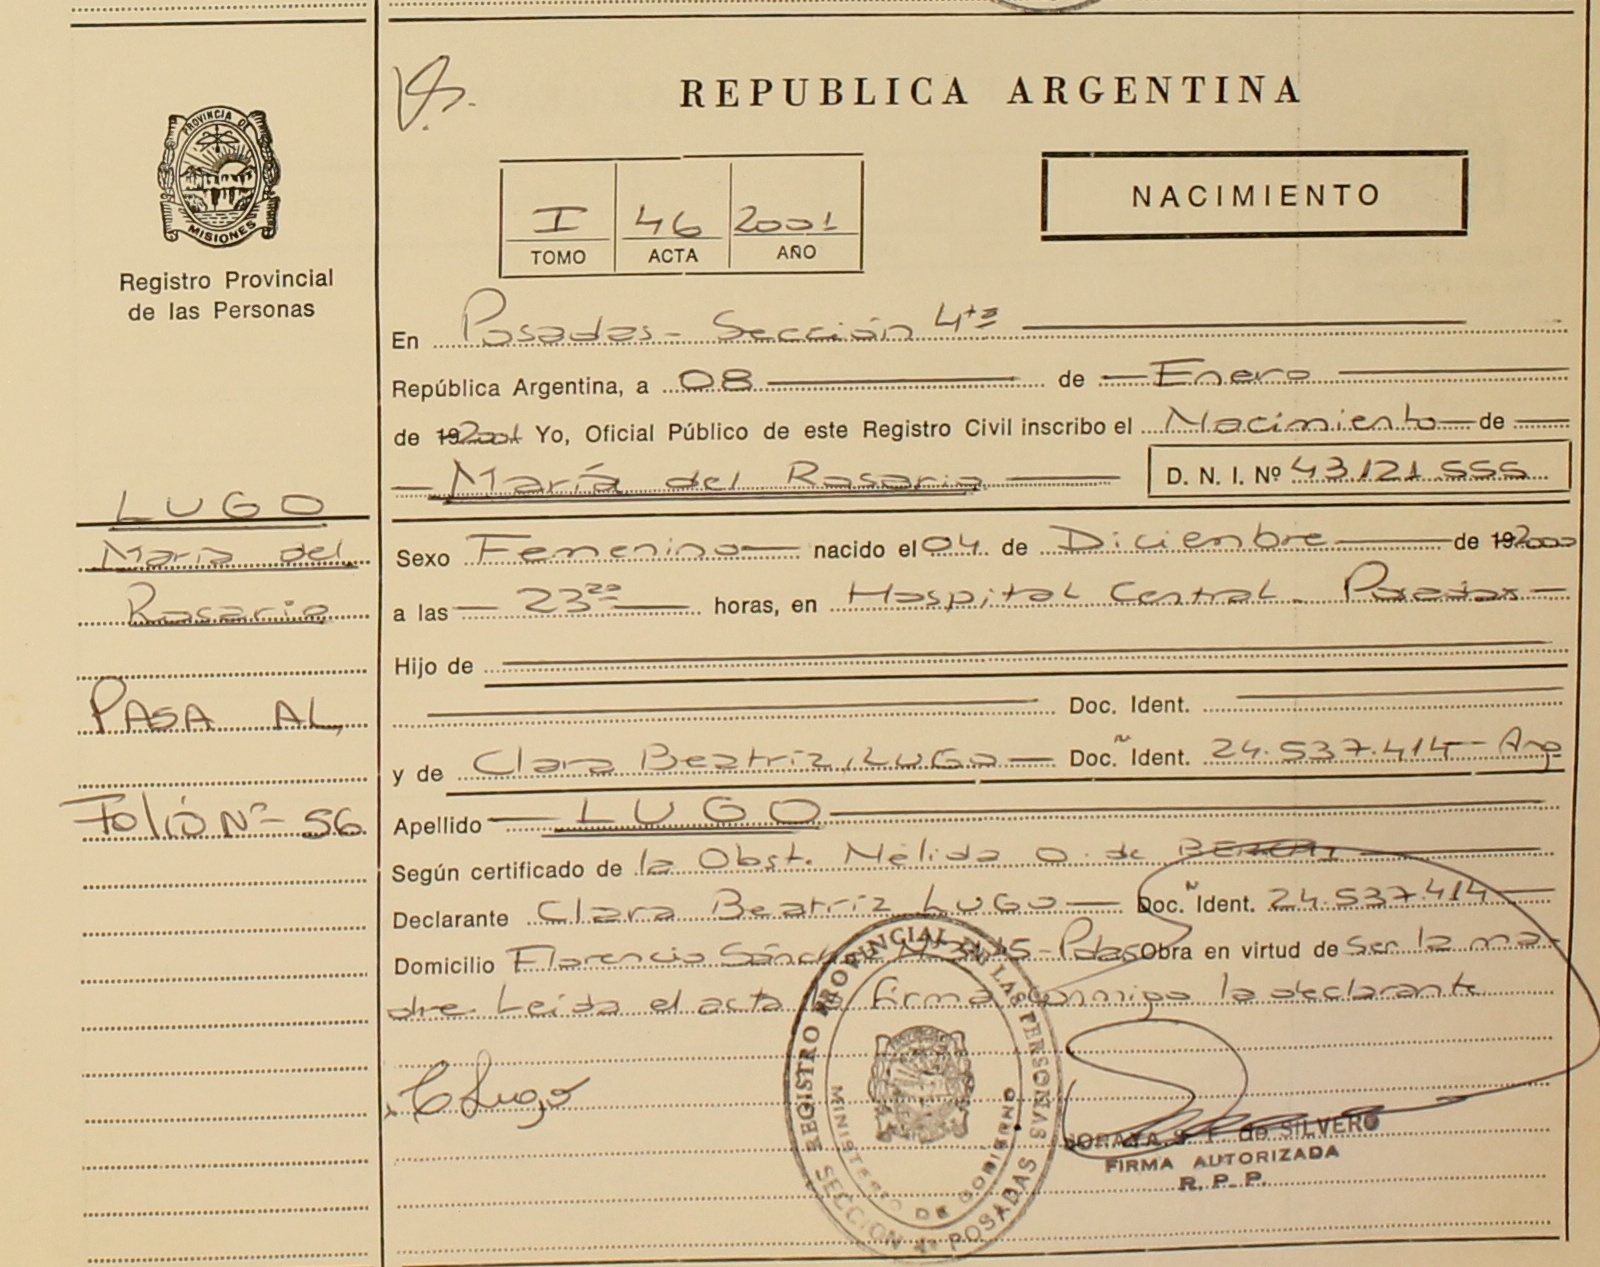 REPUBLICA ARGENTINA
PROVINCIA DE
MISIONES
Registro Provincial
de las Personas
NACIMIENTO
I 46 2001
TOMO ACTA AÑO
En Posadas - Sección 4ta
República Argentina, a 08 de Enero
de 192001 Yo, Oficial Público de este Registro Civil inscribo el Nacimiento de
María del Rosario D. N. I. Nº 43.121.555
LUGO
María del
Rosario
PASA AL
Folio Nº 56
Sexo Femenino nacido el 04 de Diciembre de 192000
a las 23 20 horas, en Hospital Central - Posadas
Hijo de
Doc. Ident.
y de Clara Beatriz LUGO Doc. Ident. 24.537.414 - Arg
Apellido LUGO
Según certificado de la Obst. Nélida O. de
Declarante Clara Beatriz LUGO Doc. Ident. 24.537.414
Domicilio Florencio Sánchez - Pdas Obra en virtud de ser la ma-
dre Leída el acta la firma conmigo la declarante
C Lugo
REGISTRO PROVINCIAL DE LAS PERSONAS
MINISTERIO DE GOBIERNO
SECCION 4ª POSADAS
SORAYA S. F. de SILVERO
FIRMA AUTORIZADA
R. P. P.